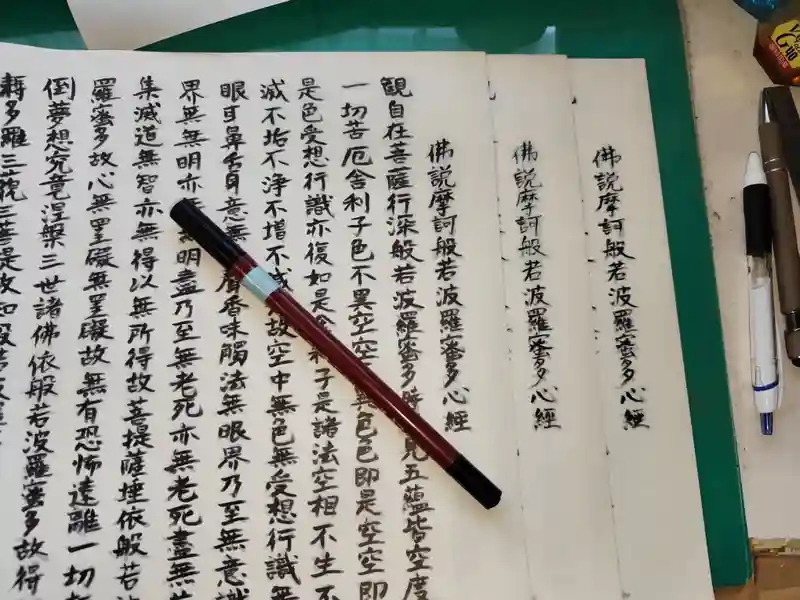 佛説摩訶般若波羅蜜多心經
佛説摩訶般若波羅蜜多心經
佛説摩訶般若波羅蜜多心經
観自在菩薩行深般若波羅蜜多時見五蘊皆空度
一切苦厄舎利子色不異空空異色色即是空空即
是色受想行識亦復如是利子是諸法空相不生不
滅不垢不浄不増不減故空中無色無受想行識無
眼耳鼻舌身意無香味觸法無眼界乃至無意識
界無無明亦無明盡乃至無老死亦無老死盡無
集滅道無智亦無得以無所得故菩提薩埵依般若
羅蜜多故心無罣礙無罣礙故無有恐怖遠離一切
倒夢想究竟涅槃三世諸佛依般若波羅蜜多故得
耨多羅三藐三菩提故知般若波